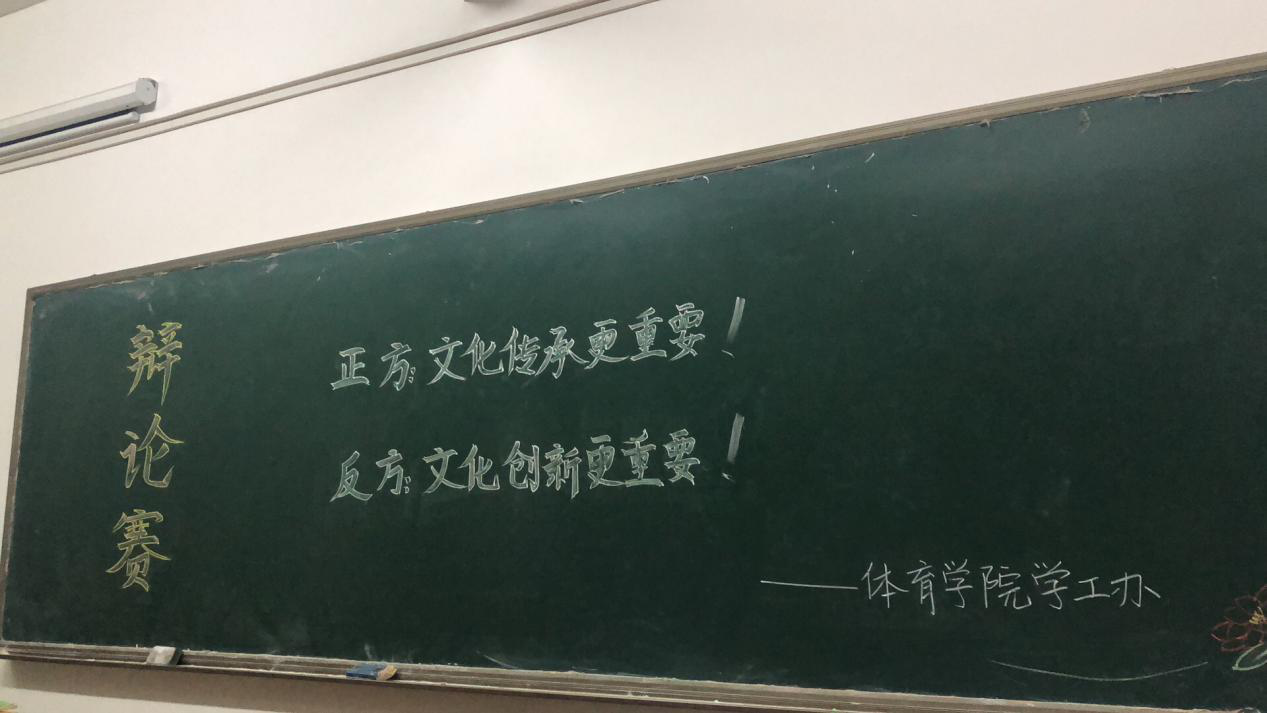 辩论赛
正方：文化传承更重要！
反方：文化创新更重要！
——体育学院学工办